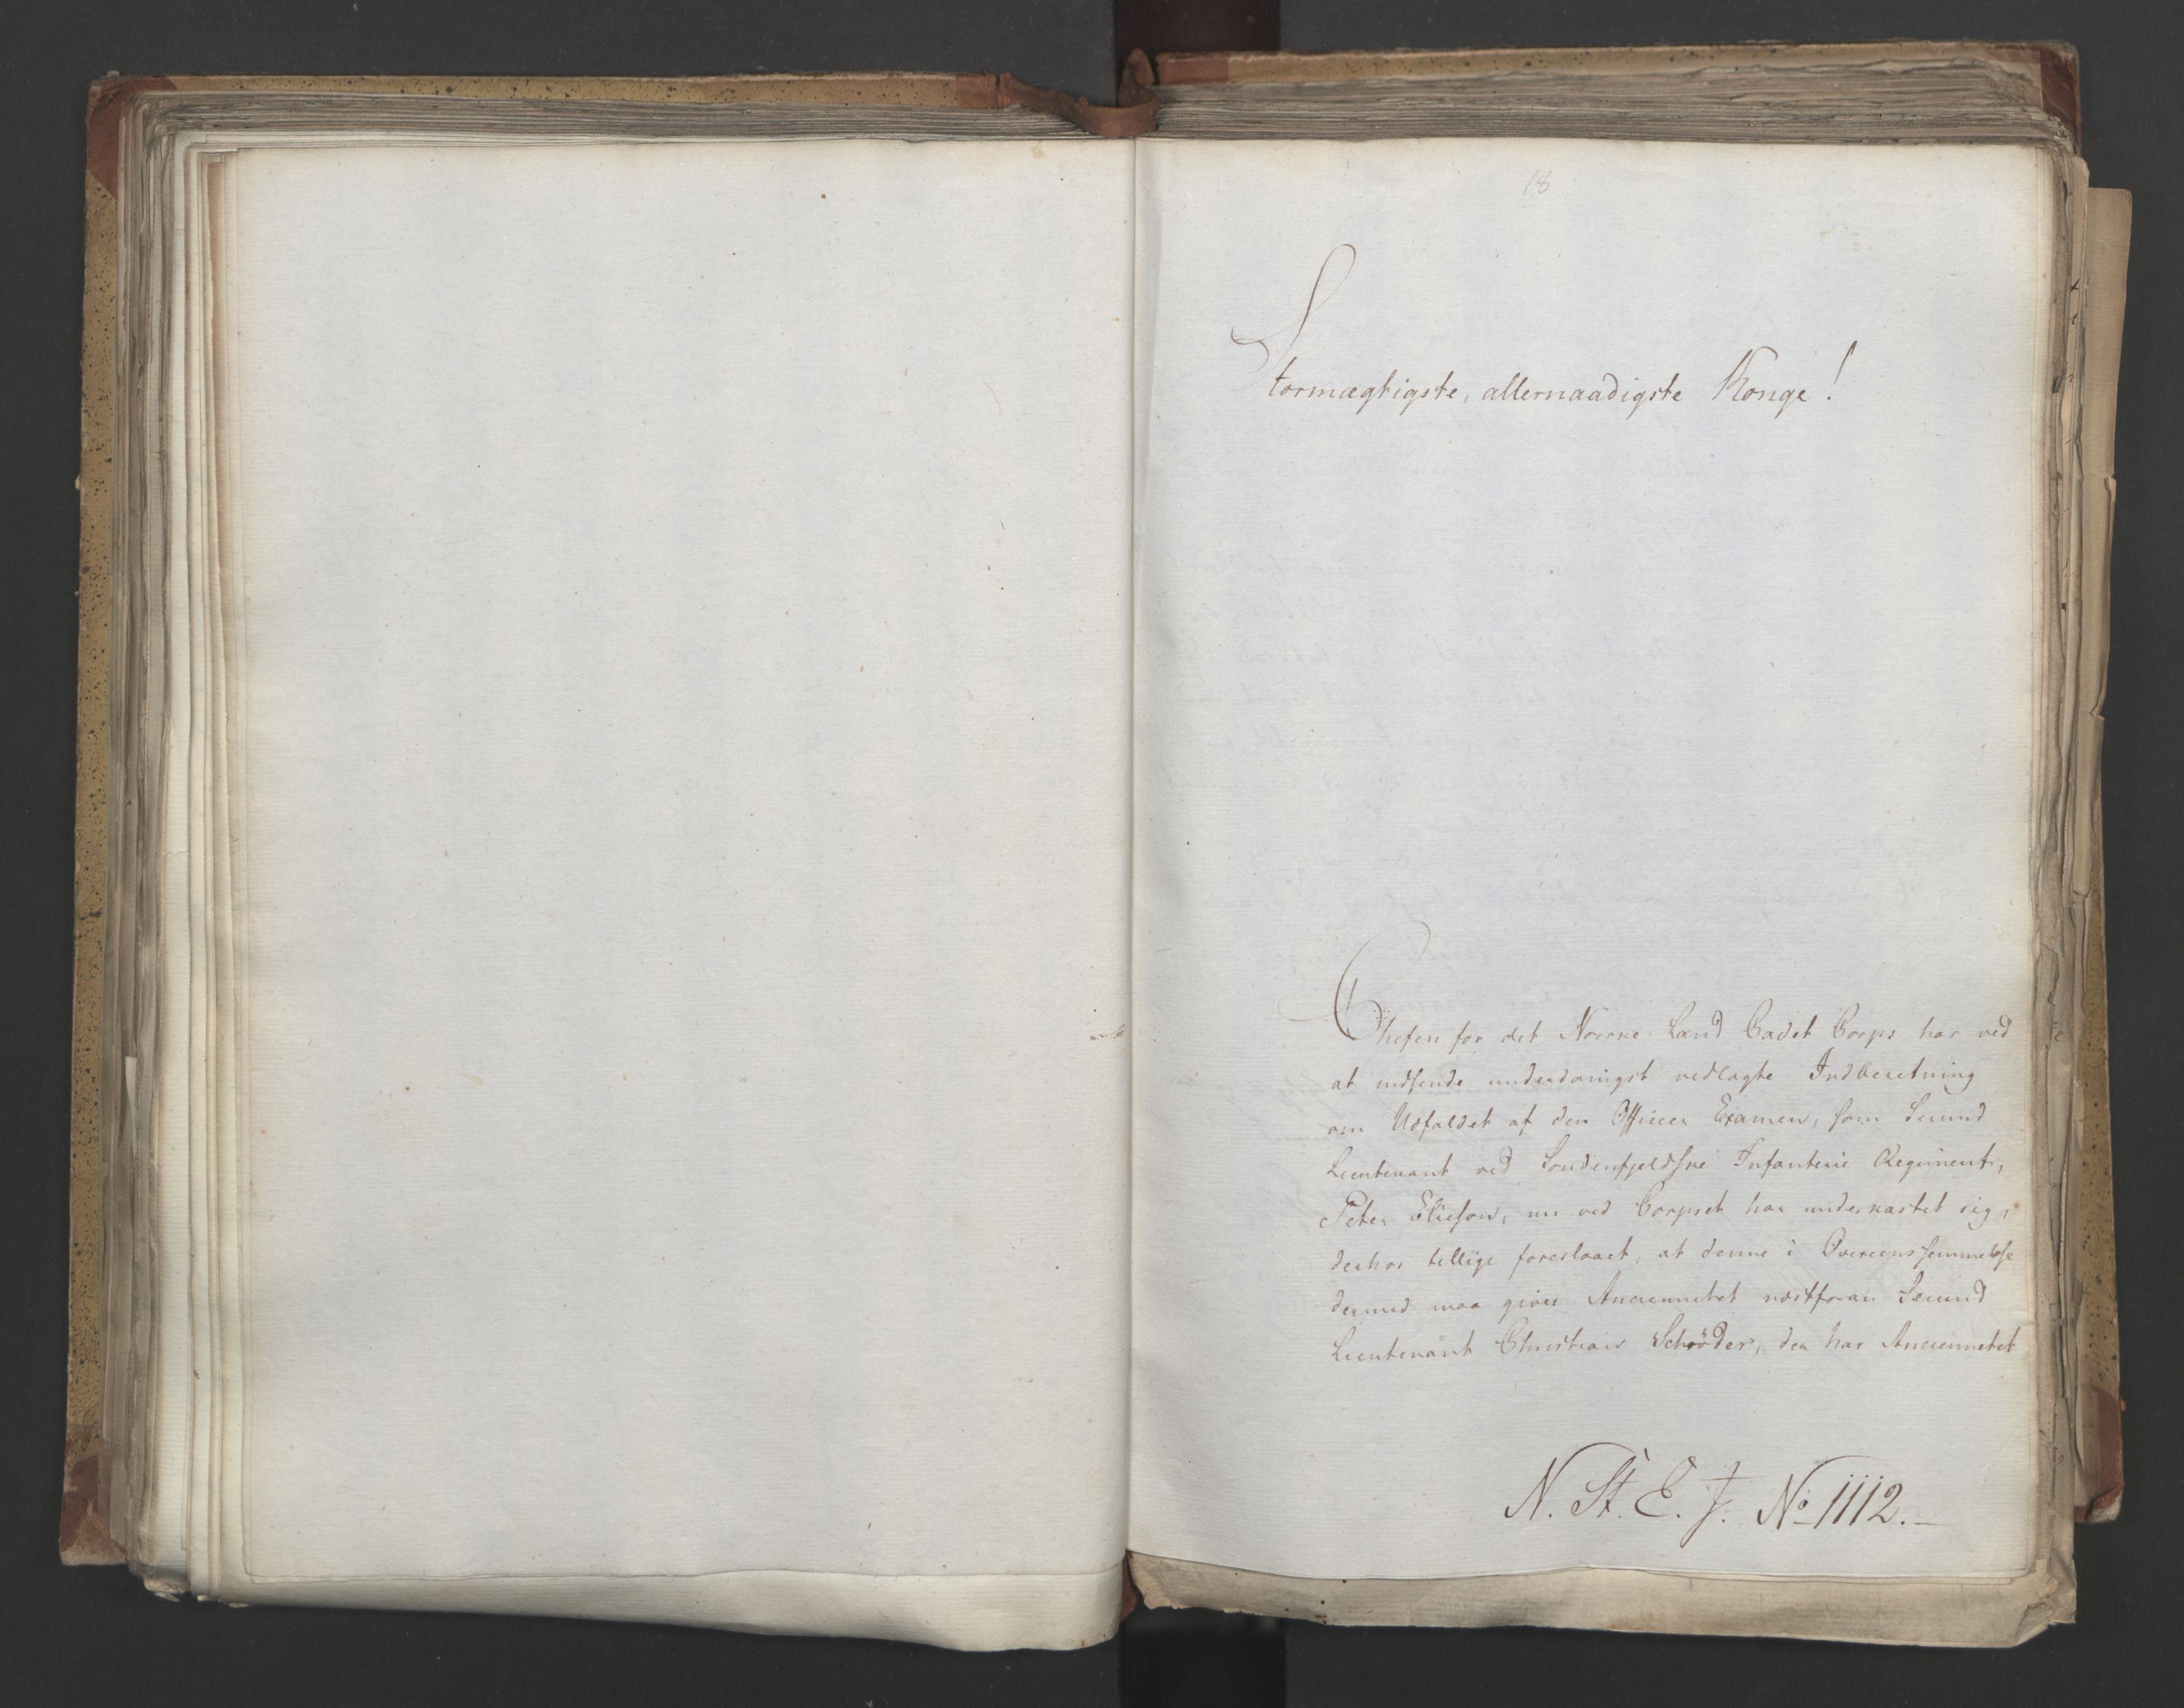 18
Stormægtigste, allernaadigste Konge!
Chefen for det Norske Land Cadet Corps har ved
at indsende underdanigst vedlagte Indberetning
om Udfaldet af den Officer Examen, som Secund
Lieutenant ved Søndenfjeldske Infanterie Regiment,
Peter Elieson, nu ved Corpset har underkastet sig,
derhos tillige foreslaaet, at denne i Overeensstemmelse
dermed maa gives Anciennetet næstforan Secund
Lieutenant Christian Schrøder, der har Anciennetet
N. St. E. J. No 1112.-